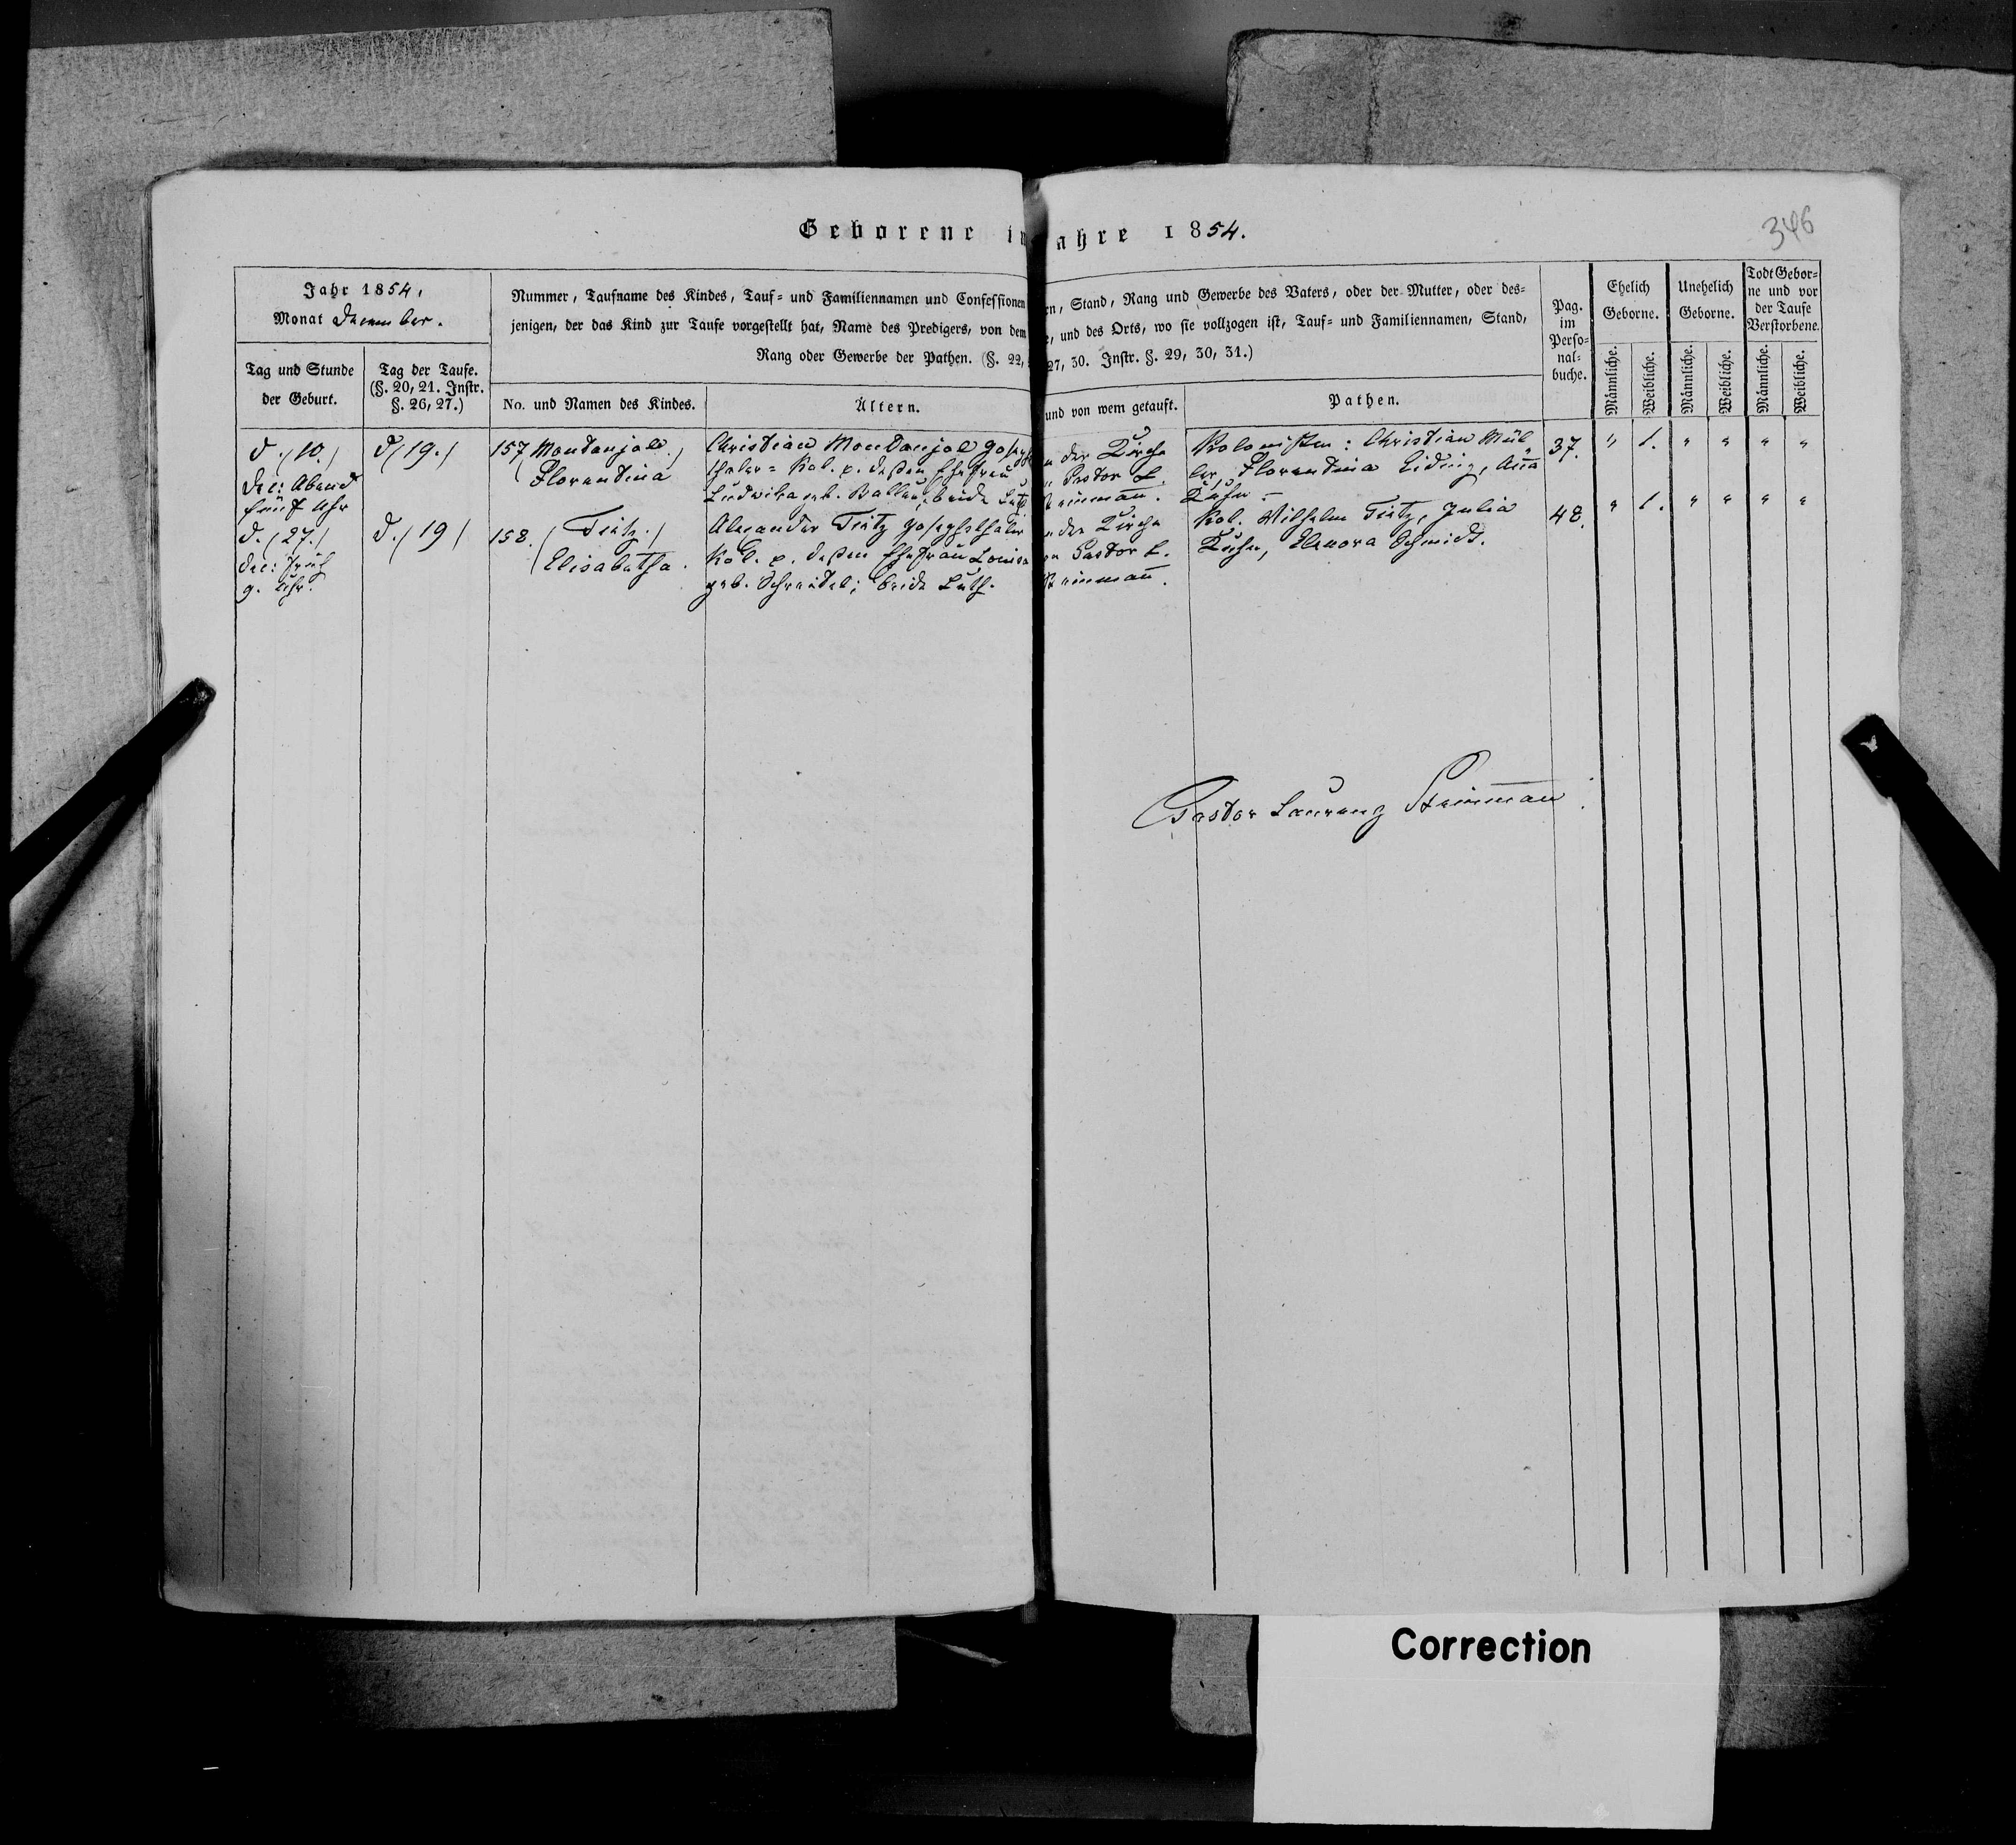 Geborene im Jahre 1854.
346
Jahr 1854,
Monat December.
Tag und Stunde
der Geburt.
Tag der Taufe.
(§. 20, 21. Instr.
§. 26, 27.)
Nummer, Taufname des Kindes, Tauf= und Familiennamen und Confessionen, Stand, Rang und Gewerbe des Vaters, oder der Mutter, oder des=
jenigen, der das Kind zur Taufe vorgestellt hat, Name des Predigers, von dem, und des Orts, wo sie vollzogen ist, Tauf= und Familiennamen, Stand,
Rang oder Gewerbe der Pathen. (§. 22, 27, 30. Instr. §. 29, 30, 31.)
No. und Namen des Kindes.
Ältern.
und von wem getauft.
Pathen.
Pag.
im
Perso=
nal=
buche.
Ehelich
Geborne.
Unehelich
Geborne.
Todt Gebor=
ne und vor
der Taufe
Verstorbene.
Männliche.
Weibliche.
Männliche.
Weibliche.
Männliche.
Weibliche.
d. /10./
Dec: Abend
fünf Uhr
d /19./
157 Montanjole /
Florentina
Christian Montanjol Joseph
thaler= Kol. p. deßen Ehefrau
Ludwika geb. beide Luth.
der Kirche
Pastor L.
Steinmann.
Kolonisten: Christian Mül
ler, Florentina Liding, Anna
Kuhn
37.
" 1. " " " "
d. /27./
Dec: Früh
9. Uhr.
d. /19/
158. / Tietz. /
Elisabetha.
Alexander Tietz Josephsthaler
Kol. p. deßen Ehefrau Louisa
geb. Schreidel; beide Luth.
der Kirche
Pastor L.
Steinmann.
Kol. Wilhelm Tietz, Julia
Kuhn, Elenora Schmidt.
48.
" 1. " " " "
Pastor Laurenz Steinmann
Correction